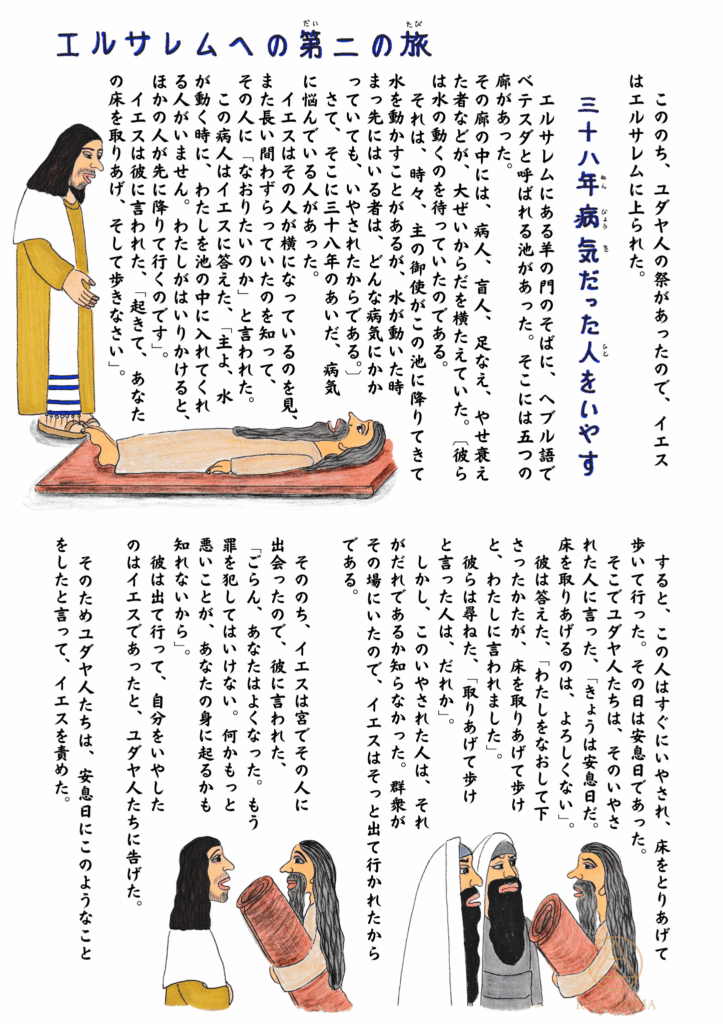 エルサレムへの第二の旅
だい　たび
こののち、ユダヤ人の祭があったので、イエス
はエルサレムに上られた。
三十八年病気だった人をいやす
ねん　びょう　き　ひと
エルサレムにある羊の門のそばに、ヘブル語で
ベテスダと呼ばれる池があった。そこには五つの
廊があった。
その廊の中には、病人、盲人、足なえ、やせ衰え
た者などが、大ぜいからだを横たえていた。〔彼ら
は水の動くのを待っていたのである。
それは、時々、主の御使がこの池に降りてきて
水を動かすことがあるが、水が動いた時
まっ先にはいる者は、どんな病気にかか
っていても、いやされたからである。〕
さて、そこに三十八年のあいだ、病気
に悩んでいる人があった。
イエスはその人が横になっているのを見、
また長い間わずらっていたのを知って、
その人に「なおりたいのか」と言われた。
この病人はイエスに答えた、「主よ、水
が動く時に、わたしを池の中に入れてくれ
る人がいません。わたしがはいりかけると、
ほかの人が先に降りて行くのです」。
イエスは彼に言われた、「起きて、あなた
の床を取りあげ、そして歩きなさい」。
すると、この人はすぐにいやされ、床をとりあげて
歩いて行った。その日は安息日であった。
そこでユダヤ人たちは、そのいやさ
れた人に言った、「きょうは安息日だ。
床を取りあげるのは、よろしくない」。
彼は答えた、「わたしをなおして下
さったかたが、床を取りあげて歩け
と、わたしに言われました」。
彼らは尋ねた、「取りあげて歩け
と言った人は、だれか」。
しかし、このいやされた人は、それ
がだれであるか知らなかった。群衆が
その場にいたので、イエスはそっと出て行かれたから
である。
そののち、イエスは宮でその人に
出会ったので、彼に言われた、
「ごらん、あなたはよくなった。もう
罪を犯してはいけない。何かもっと
悪いことが、あなたの身に起るかも
知れないから」。
彼は出て行って、自分をいやした
のはイエスであったと、ユダヤ人たちに告げた。
そのためユダヤ人たちは、安息日にこのようなこと
をしたと言って、イエスを責めた。